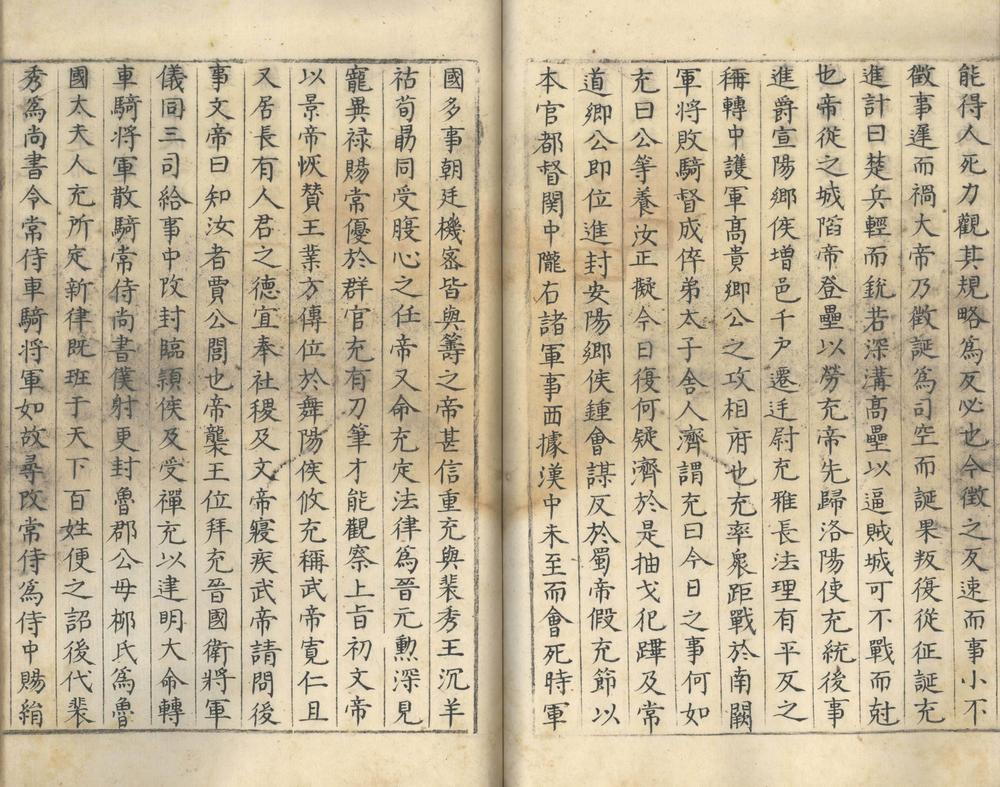 能得人死力觀其規略為反必也今徵之反速而事小不
徵事遲而禍大帝乃徵誕為司空而誕果叛復從征誕充
進計曰楚兵輕而銳若深溝髙壘以逼賊城可不戰而尅
也帝從之城䧟帝登壘以勞充帝先歸洛陽使充統後事
進爵宣陽鄉侯增邑千户遷廷尉充雅長法理有平反之
稱轉中護軍髙貴鄉公之攻相府也充率衆距戰於南闕
軍將敗騎督成倅弟太子舍人濟謂充曰今日之事何如
充曰公等養汝正擬今日復何疑濟於是抽戈犯蹕及常
道鄉公即位進封安陽鄉侯鍾會謀反於蜀帝假充節以
本官都督関中隴右諸軍事西據漢中未至而會死時軍
國多事朝廷機宻皆與籌之帝甚信重充與裴秀王沉羊
祜荀勗同受腹心之任帝又命充定法律為晉元勲深見
寵異禄賜常優於群官充有刀筆才能觀察上旨初文帝
以景帝恢贊王業方傳位於舞陽侯攸充稱武帝寛仁且
又居長有人君之德宜奉社稷及文帝寢疾武帝請問後
事文帝曰知汝者賈公閭也帝龔王位拜充晉國衛將軍
儀同三司給事中改封臨潁侯及受禪充以建明大命轉
車騎將軍散騎常侍尚書僕射更封魯郡公母栁氏為魯
國太夫人充所定新律既班于天下百姓便之詔後代裴
秀為尚書令常侍車騎将軍如故尋改常侍為侍中賜絹